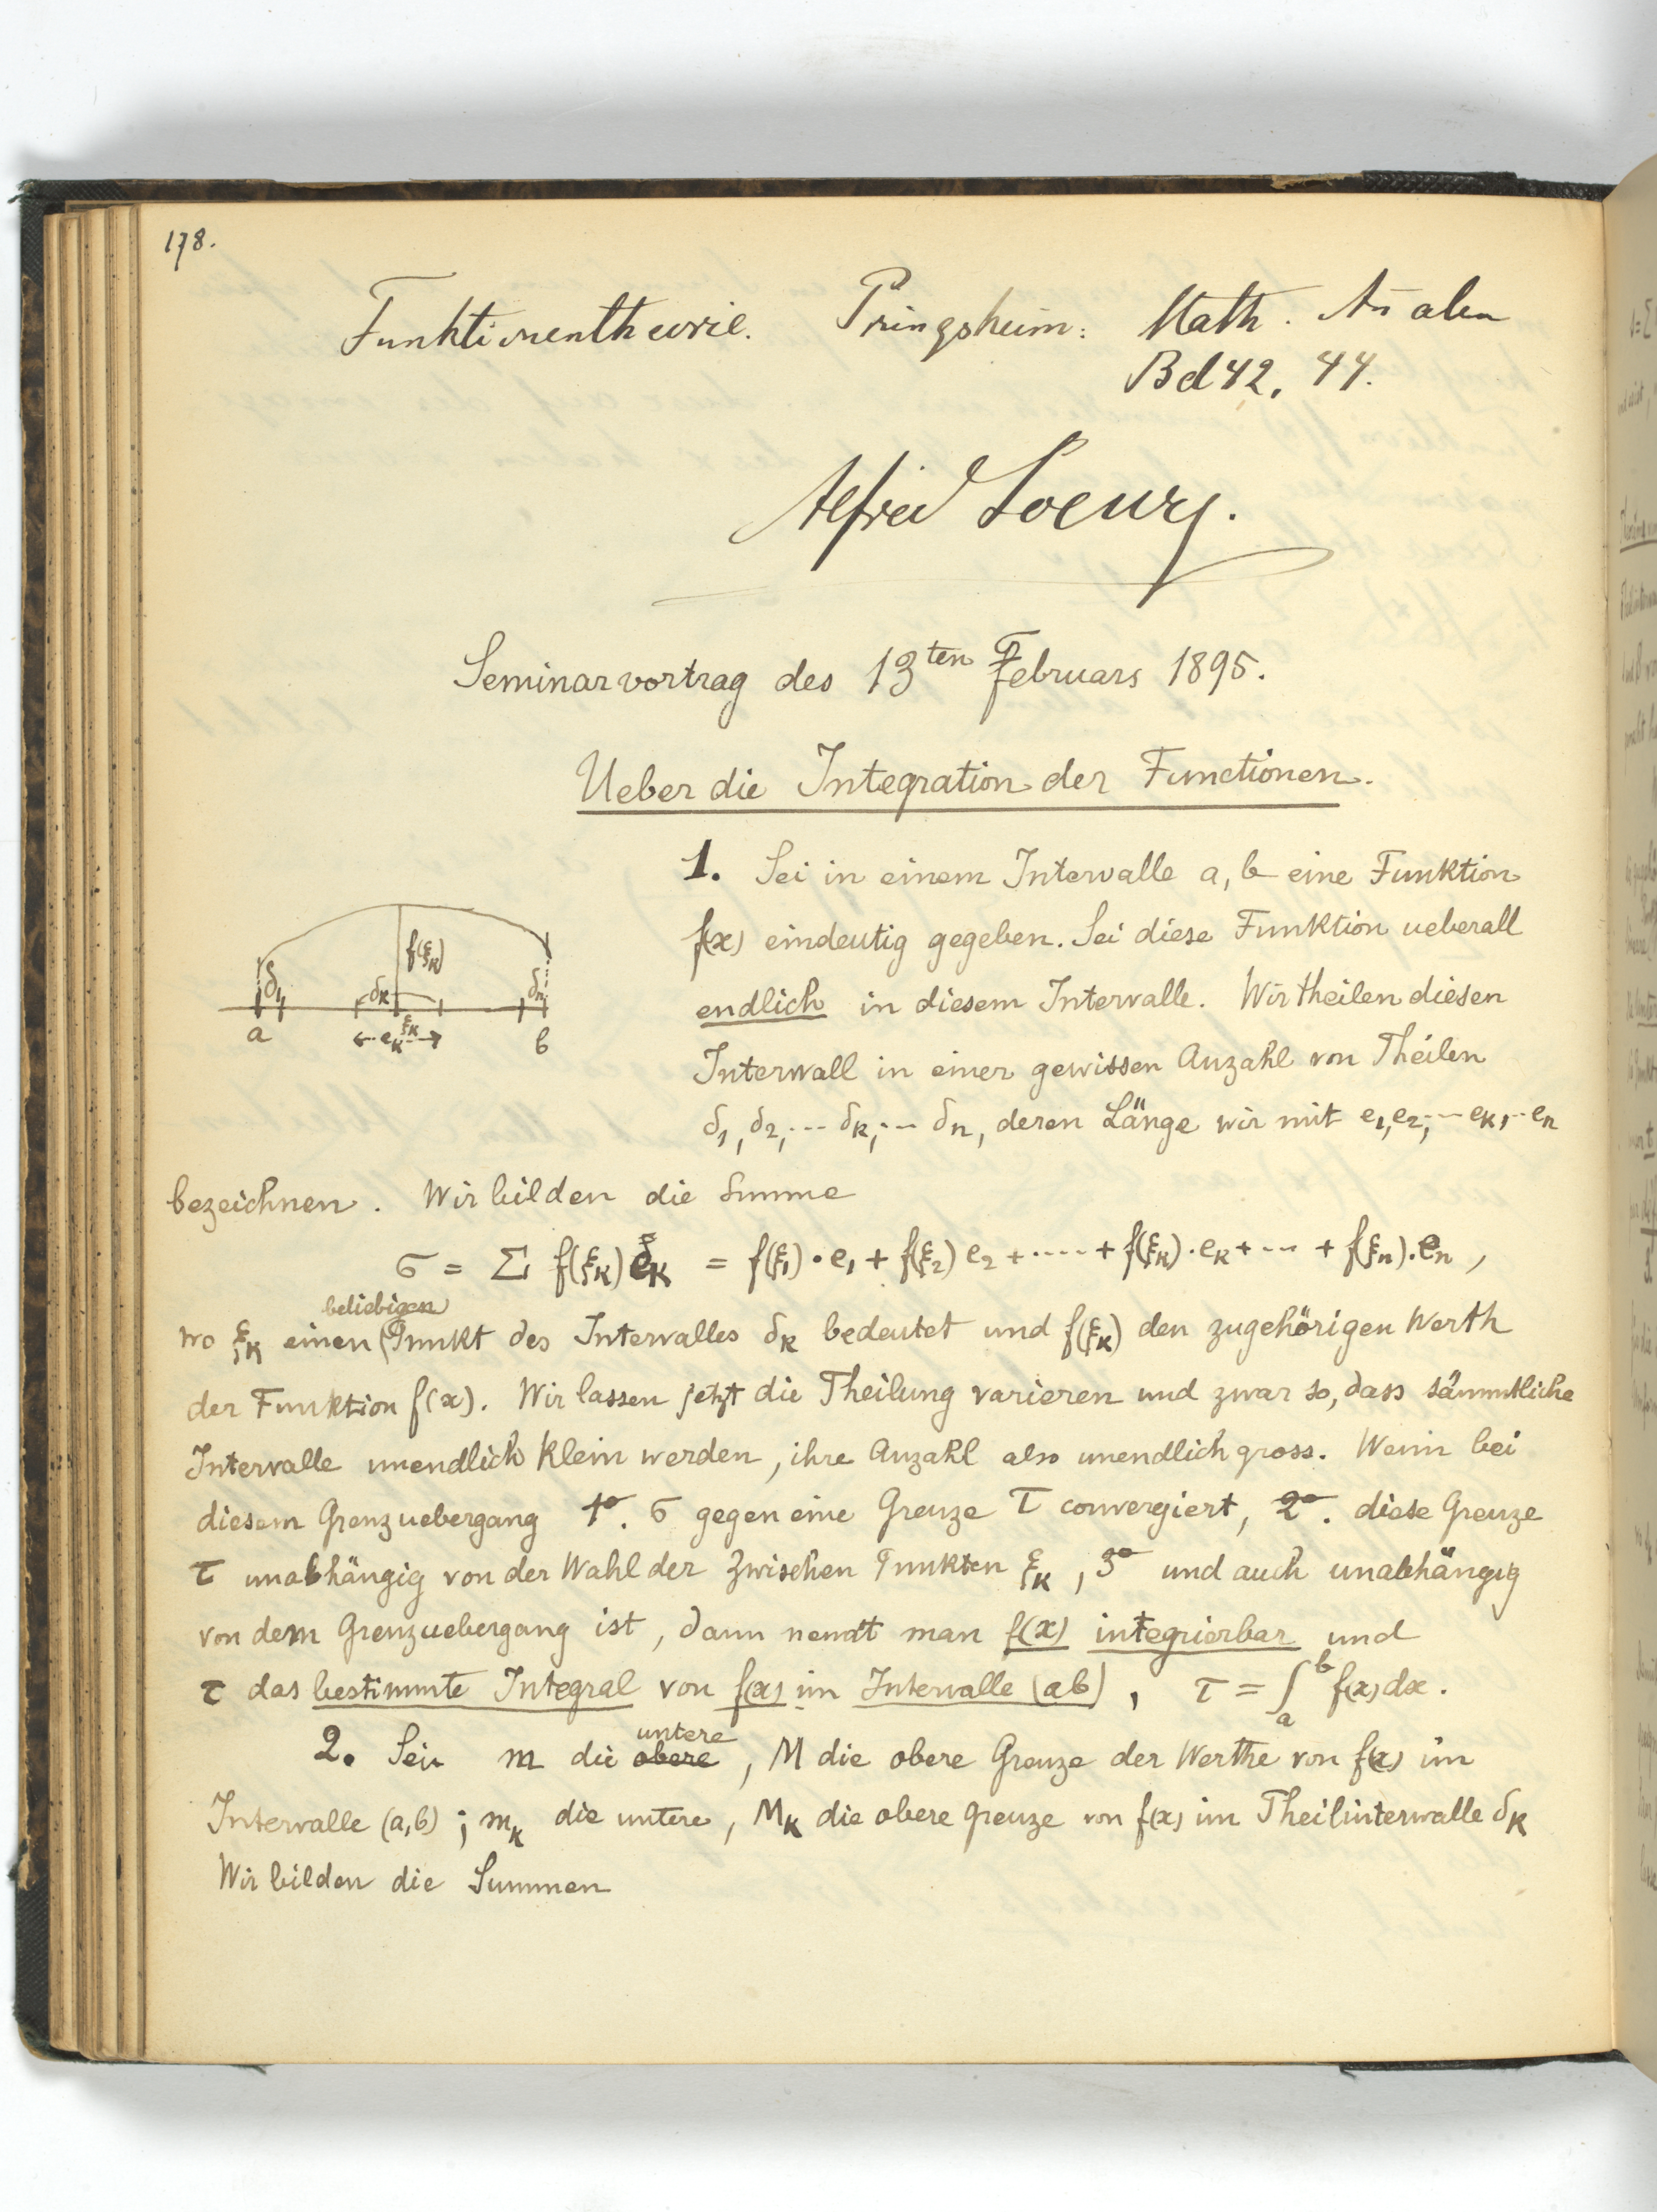 178.
Funktionentheorie. Pringsheim: Math. Analen
Bd 42, 44.
Alfred Loewy.
Seminarvortrag des 13ten Februars 1895.
Ueber die Integration der Functionen.
1. Sei in einem Intervalle a, b eine Funktion
f(x) eindeutig gegeben. Sei diese Funktion ueberall
endlich in diesem Intervalle. Wir theilen diesen
Intervall in einer gewissen Anzahl von Theilen
δ₁, δ₂, ... δₖ, ... δₙ, deren Länge wir mit e₁, e₂, ... eₖ, ... eₙ
f(ξₖ)
δ₁ δₖ δₙ
a eₖ ξₖ b
bezeichnen. Wir bilden die Summe
σ = Σ f(ξₖ) eₖ = f(ξ₁)·e₁ + f(ξ₂) e₂ + ···· + f(ξₖ)·eₖ + ··· + f(ξₙ)·eₙ,
beliebigen
wo ξₖ einen Punkt des Intervalles δₖ bedeutet und f(ξₖ) den zugehörigen Werth
der Funktion f(x). Wir lassen jetzt die Theilung varieren und zwar so, dass sämmtliche
Intervalle unendlich klein werden, ihre Anzahl also unendlich gross. Wenn bei
diesem Grenzuebergang 1º. σ gegen eine Grenze τ convergiert, 2º. diese Grenze
τ unabhängig von der Wahl der Zwischen Punkten ξₖ, 3º und auch unabhängig
von dem Grenzuebergang ist, dann nennt man f(x) integrierbar und
τ das bestimmte Integral von f(x) im Intervalle (ab), τ = ∫ₐᵇ f(x) dx.
untere
2. Sei m die obere, M die obere Grenze der Werthe von f(x) im
Intervalle (a,b); mₖ die untere, Mₖ die obere Grenze von f(x) im Theilintervalle δₖ
Wir bilden die Summen